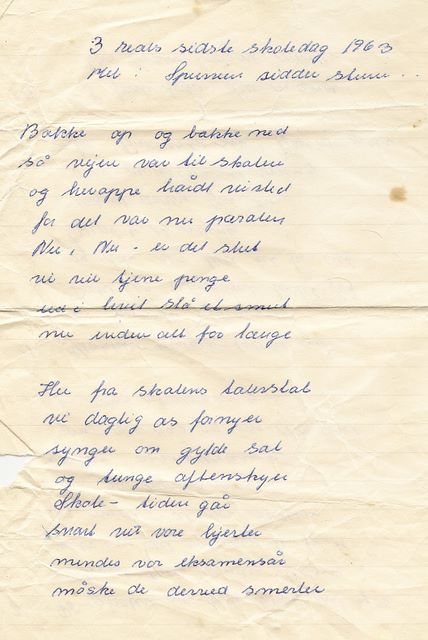 3 reals sidste skoledag 1963
Mel: Spurven sidder stum ..
Bakke op og bakke ned
så vejen var til skolen
og knappe hårdt vi sled
for det var nu parolen
Nu, Nu - er det slut
vi vil tjene penge
ud i livet slå et smut
nu inden alt for længe
Her fra skolens talerstol
vi daglig os fornyer
synger om gylde sol
og tunge aftenskyer
Skole- tiden går
snart vil vore hjerter
mindes vor eksamensår
måske de derved smerter